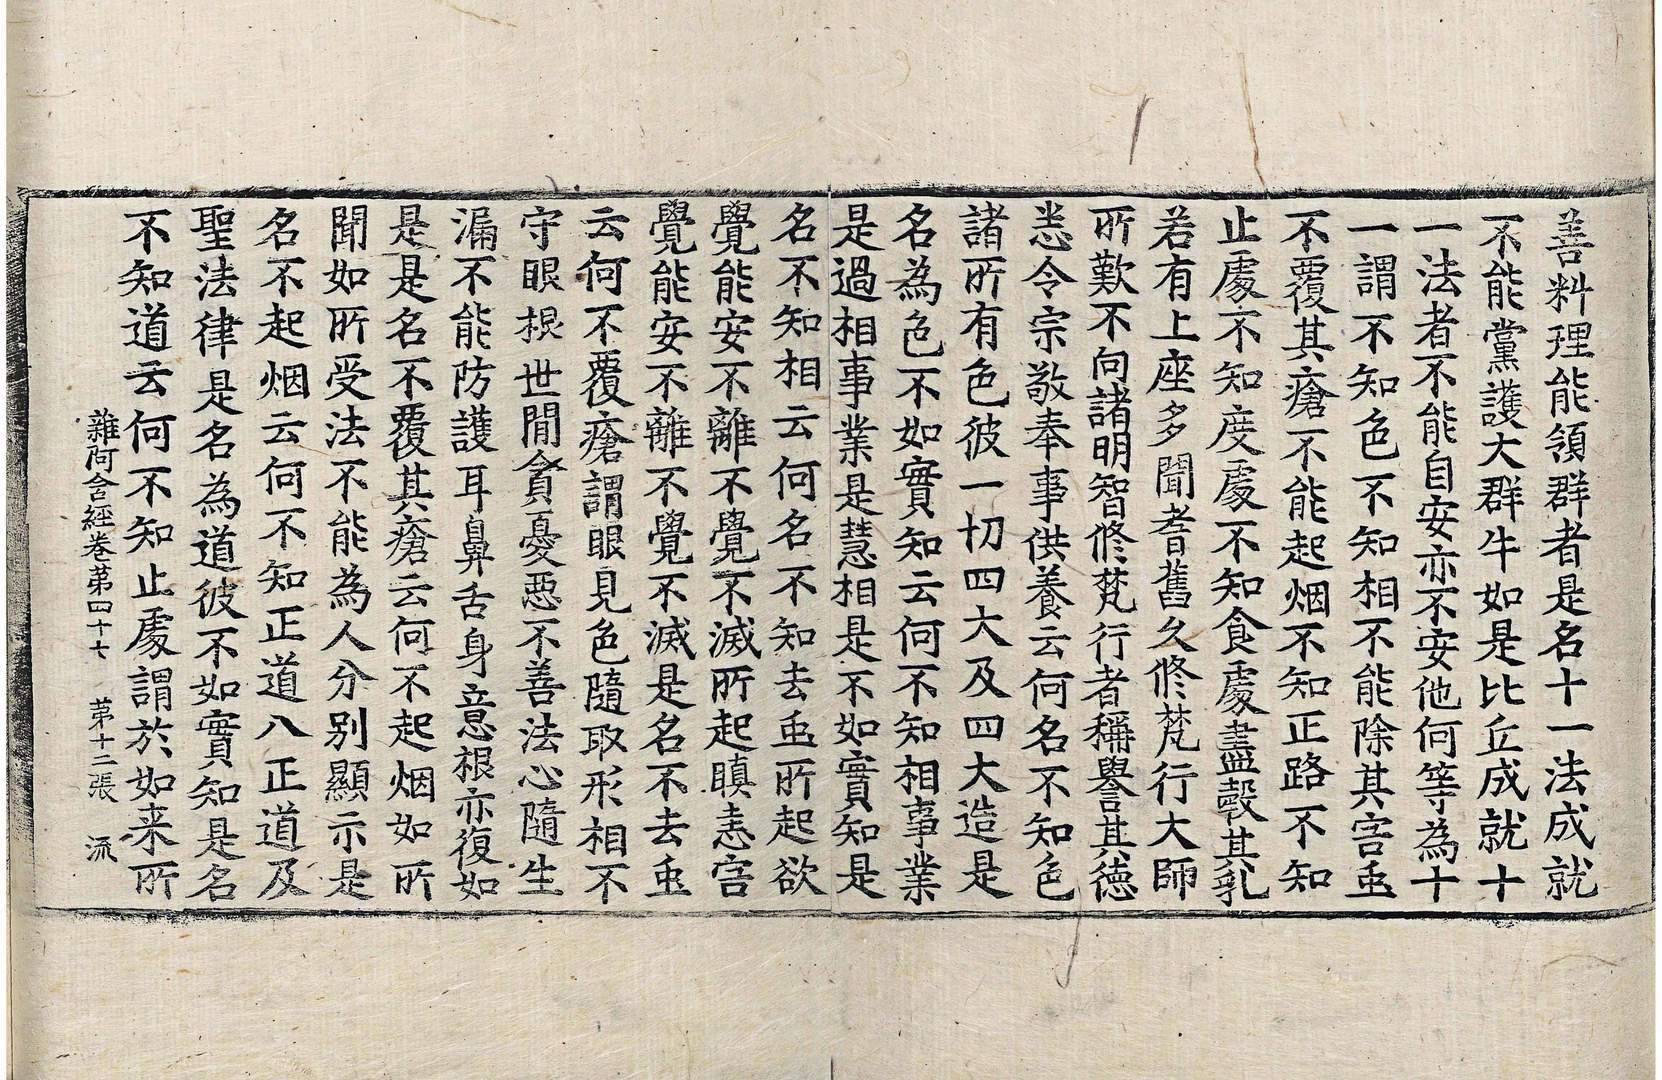 善料理能領群者是名十一法成就
不能黨護大群牛如是比丘成就十
一法者不能自安亦不安他何等為十
一謂不知色不知相不能除其害䖝
不覆其瘡不能起烟不知正路不知
止處不知度處不知食處盡㲉其乳
若有上座多聞耆舊久修梵行大師
所歎不向諸明智修梵行者稱譽其德
悉令宗敬奉事供養云何名不知色
諸所有色彼一切四大及四大造是
名為色不如實知云何不知相事業
是過相事業是慧相是不如實知是
名不知相云何名不知去䖝所起欲
覺能安不離不覺不滅所起瞋恚害
覺能安不離不覺不滅是名不去䖝
云何不覆瘡謂眼見色隨取形相不
守眼根世間貪憂惡不善法心隨生
漏不能防護耳鼻舌身意根亦復如
是是名不覆其瘡云何不起烟如所
聞如所受法不能為人分別顯示是
名不起烟云何不知正道八正道及
聖法律是名為道彼不如實知是名
不知道云何不知止處謂於如来所
雜阿含經卷苐四十七 苐十二張 流